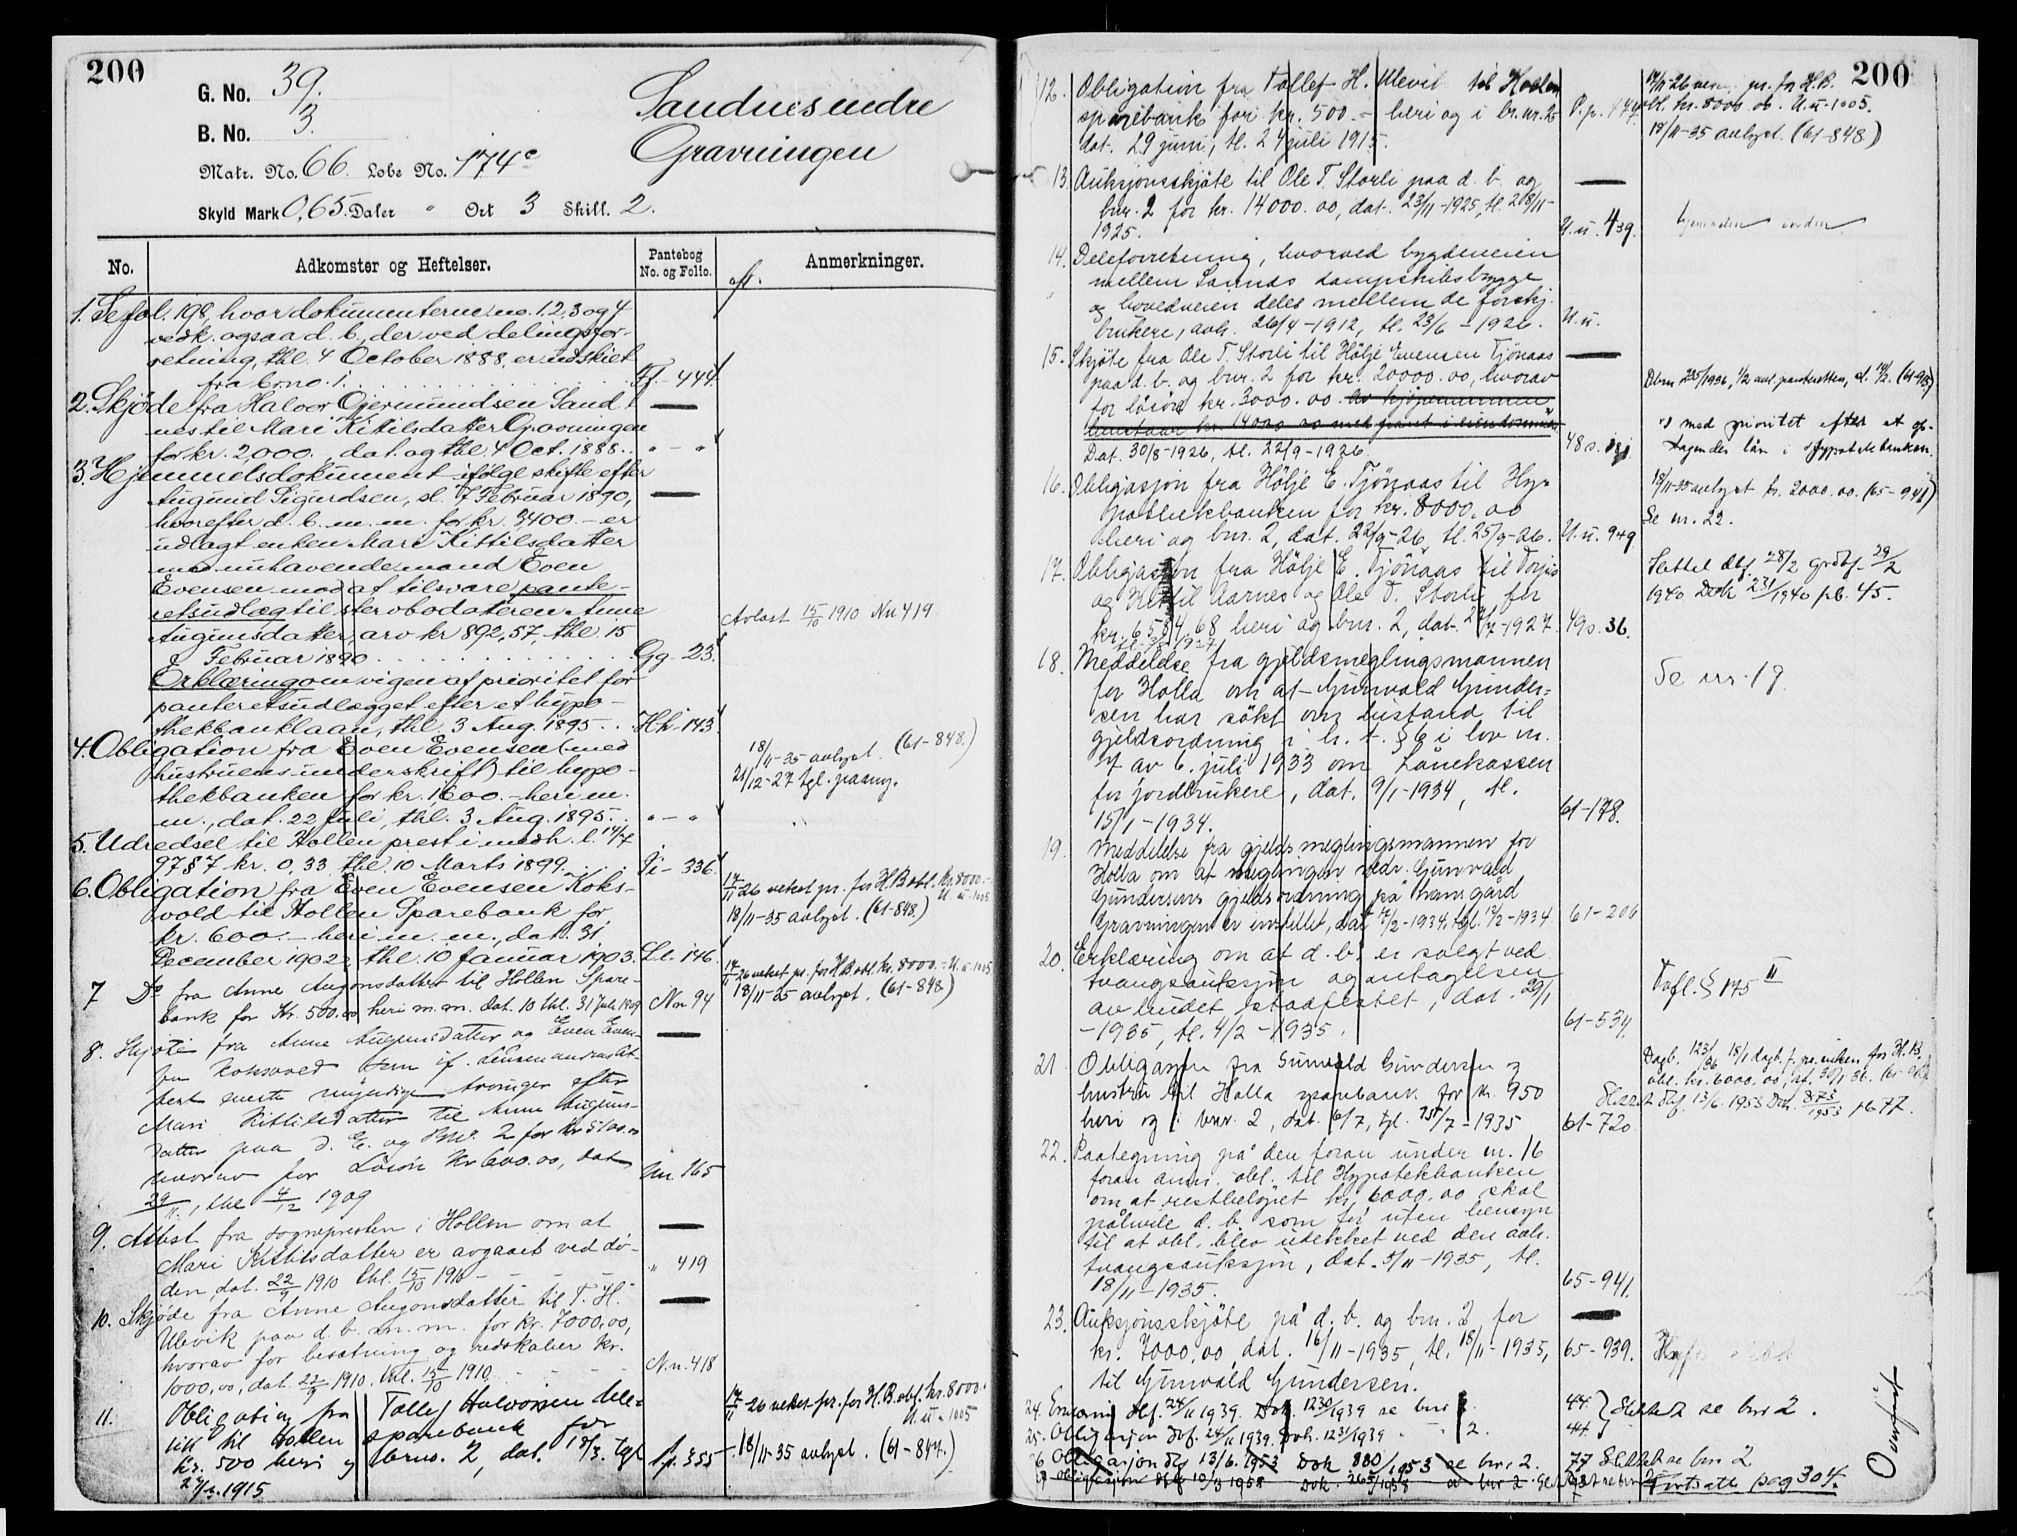 200
G. No. 39.
B. No. 3.
Matr. No. 66. Løbe No. 174c
Skyld Mark 0,65. Daler " Ort 3 Skill. 2.
Sandnes indre
Gravningen
No. Adkomster og Heftelser. Pantebog No. og Folio. Anmerkninger.
1. Se fol. 198, hvor dokumenterne no. 1, 2, 3 og 4
vedk. ogsaa d. b., der ved delingsfor-
retning, thl. 4 October 1888, er udskilt
fra bno. 1. Ff. 444
2. Skjøde fra Halvor Gjermundsen Sand
nes til Mari Kittilsdatter Gravningen
for kr. 2,000., dat. og thl. 4 Oct. 1888. " - "
3. Hjemmelsdokument ifølge skifte efter
Augund Sigurdsen, sl. 7 Februar 1890,
hvorefter d. b. m. m. for kr. 3400.- er
udlagt enken Mari Kittilsdatter
med nuhavende mand Even
Evensen mod at tilsvare pante-
retsudlæg til stervbodatteren Anne
Augunsdatter, arv kr 892,57, thl. 15
Februar 1890 Gg - 23.
Avlast 15/10 1910 Nn 419
Erklæring om vigen af prioritet for
panteretsudlægget efter et hypo-
thekbanklaan, thl. 3 Aug. 1895. Hh. 143
4. Obligation fra Even Evensen (med
hustruens underskrift) til hypo-
thekbanken for kr. 1,600.- heri m.
m., dat. 22 Juli, thl. 3 Aug. 1895. " - "
18/11-35 avlyst. (61-848.)
21/12-27 tgl. paany.
5. Udredsel til Hollen prest i medh. l. 14/7
97 § 7 kr. 0,33, thl. 10 Marts 1899. Ii - 336
6. Obligation fra Even Evensen Koks-
vold til Hollen Sparebank for
kr. 600.- heri m. m., dat. 31
December 1902, thl. 10 Januar 1903. Ll. 146
17/11-26 veket pr. for H.B. obl. kr. 8000.-
U. u. 1005
18/11-35 avlyst. (61-848.)
7 Do fra Anne Augonsdatter til Hollen Spare-
bank for Kr. 500,00 heri m. m. dat. 10 thl. 31 Juli 1909 Nn 94
17/11 26 veket pr. for H.B. obl. kr. 8000.- U. u. 1005
18/11-35 avlyst. (61-848)
8. Skjøte fra Anne Augunsdatter og Even Even-
Mari Kittilsdatter til Anne Auguns-
datter paa d. E. og Bno. 2 for Kr 5100.00
hvorav for Løsøre Kr 600.00, dat
29/11, thl 4/12 1909 Nn. 165
9. Attest fra sognepresten i Hollen om at
Mari Kittilsdatter er avgaaet ved dø-
den, dat. 22/9 1910 thl. 15/10 1910 - " 419
10. Skjøde fra Anne Augonsdatter til T. H.
Ulevik paa d. b. m. m. for kr. 7000,00,
hvorav for besætning og redskaber kr.
1000,00, dat. 22/9 1910. thl. 15/10 1910. Nn. 418
11. Obligation fra Tollef Halvorsen Ule-
vik til Hollen sparebank for
kr. 500 heri og brno. 2, dat. 18/3. tgl
1915 Pp. 355
17/11-26 veket pr. for H.B. obl. kr. 8000.-
U. u. 1005
18/11-35 avlyst. (61-847.)
200
12. Obligation fra Tollef H. Ulevik til Hollen
sparebank for kr. 500.- heri og i br. nr. 2
dat. 29 juni, tl. 24 juli 1915. P. p. 444
17/11-26 pr. for H.B.
obl. kr. 8000.00. U. u. 1005.
18/11-35 avlyst. (61-848)
13. Auksjonsskjöte til Ole T. Storli paa d. b. og
bnr. 2 for kr. 14000.00, dat. 23/11-1925, tl. 28/11-
1925. U. u. 439.
14. Deleforretning, hvorved bygdeveien
mellem Sannes dampskibsbrygge
og hovedveien deles mellem de forskj.
brukere, avh. 26/4-1912, tl. 23/6-1926. U. u.
15. Skjöte fra Ole T. Storli til Hölje Evensen Tjönaas
paa d. b. og bnr. 2 for kr. 20000.00, hvorav
for lösöre kr. 3000.00.
Dat. 30/8-1926, tl. 22/9-1926
med prioritet efter et op-
tagendes lån i Hypotekbanken.
16. Obligasjon fra Hölje E. Tjönaas til Hy-
potekbanken for kr. 8000.00
heri og bnr. 2, dat. 22/9-26, tl. 25/9-26. U. u. 949
18/11-35 avlyst kr. 2000.00. (65-941)
Se nr. 22.
17. Obligasjon fra Hölje E. Tjönaas til Torjus
og Kittil Aarnes og Ole T. Storli for
kr. 6584.68 heri og bnr. 2, dat. 2/7-1927. 49s. 36.
Slettet dbf. 28/2 grdbf. 29/2
1940 Dok 231/1940 pb. 45.
18. Meddelelse fra gjeldsmeglingsmannen
for Holla om at Gunvald Gunder-
sen har sökt om bistand til
gjeldsordning i h. t. § 6 i lov nr.
7 av 6. juli 1933 om Lånekassen
for jordbrukere, dat. 9/1-1934, tl.
15/1-1934. 61-178.
Se nr. 19.
19. Meddelelse fra gjelds meglingsmannen for
Holla om at meglingen vedr. Gunvald
Gundersens gjeldsordning på hans gård
Gravningen er innstillet, dat 12/2-1934, tgl. 12/2-1934 61-206
20. Erklæring om at d. b. er solgt ved
tvangsauksjon og antagelsen
av budet stadfestet, dat. 29/1
-1935, tl. 4/2-1935. 61-534.
Tvfl. § 175 II
21. Obligasjon fra Gunvald Gundersen og
hustru til Holla sparebank for kr. 950
heri og i bnr. 2, dat. 6/7, tgl. 15/7-1935 61-720
Slettet dbf. 13/6. 1953 Dok. 879/1953 pb 77.
22. Paategning på den foran under nr. 16
foran anm. obl. til Hypotekbanken
om at restbelöpet kr. 6000.00 skal
påhvile d. b. som för uten hensyn
til at obl. blev utelukket ved den avh.
tvangsauksjon, dat. 5/11-1935, tl.
18/11-1935. 65-941.
23. Auksjonsskjöte på d. b. og bnr. 2 for
kr. 7000,00, dat. 16/11-1935, tl. 18/11-1935,
til Gunvald Gundersen. 65-939.
24. dbf. 24/11 1939. Dok. 1230/1939 se bnr 2. 44 } Slettet se bnr 2.
25. Obligasjon dbf. 24/11 1939. Dok. 1231/1939 " " 2. 44
26 Obligasjon dbf 13/6. 1953 Dok 880/1953 se bnr. 2. 77 Slettet se bnr 2
obligasjon dbf 10/3 1958 Dok. 265/1958 se bnr 2
Fortsatt pag 304.
Overført